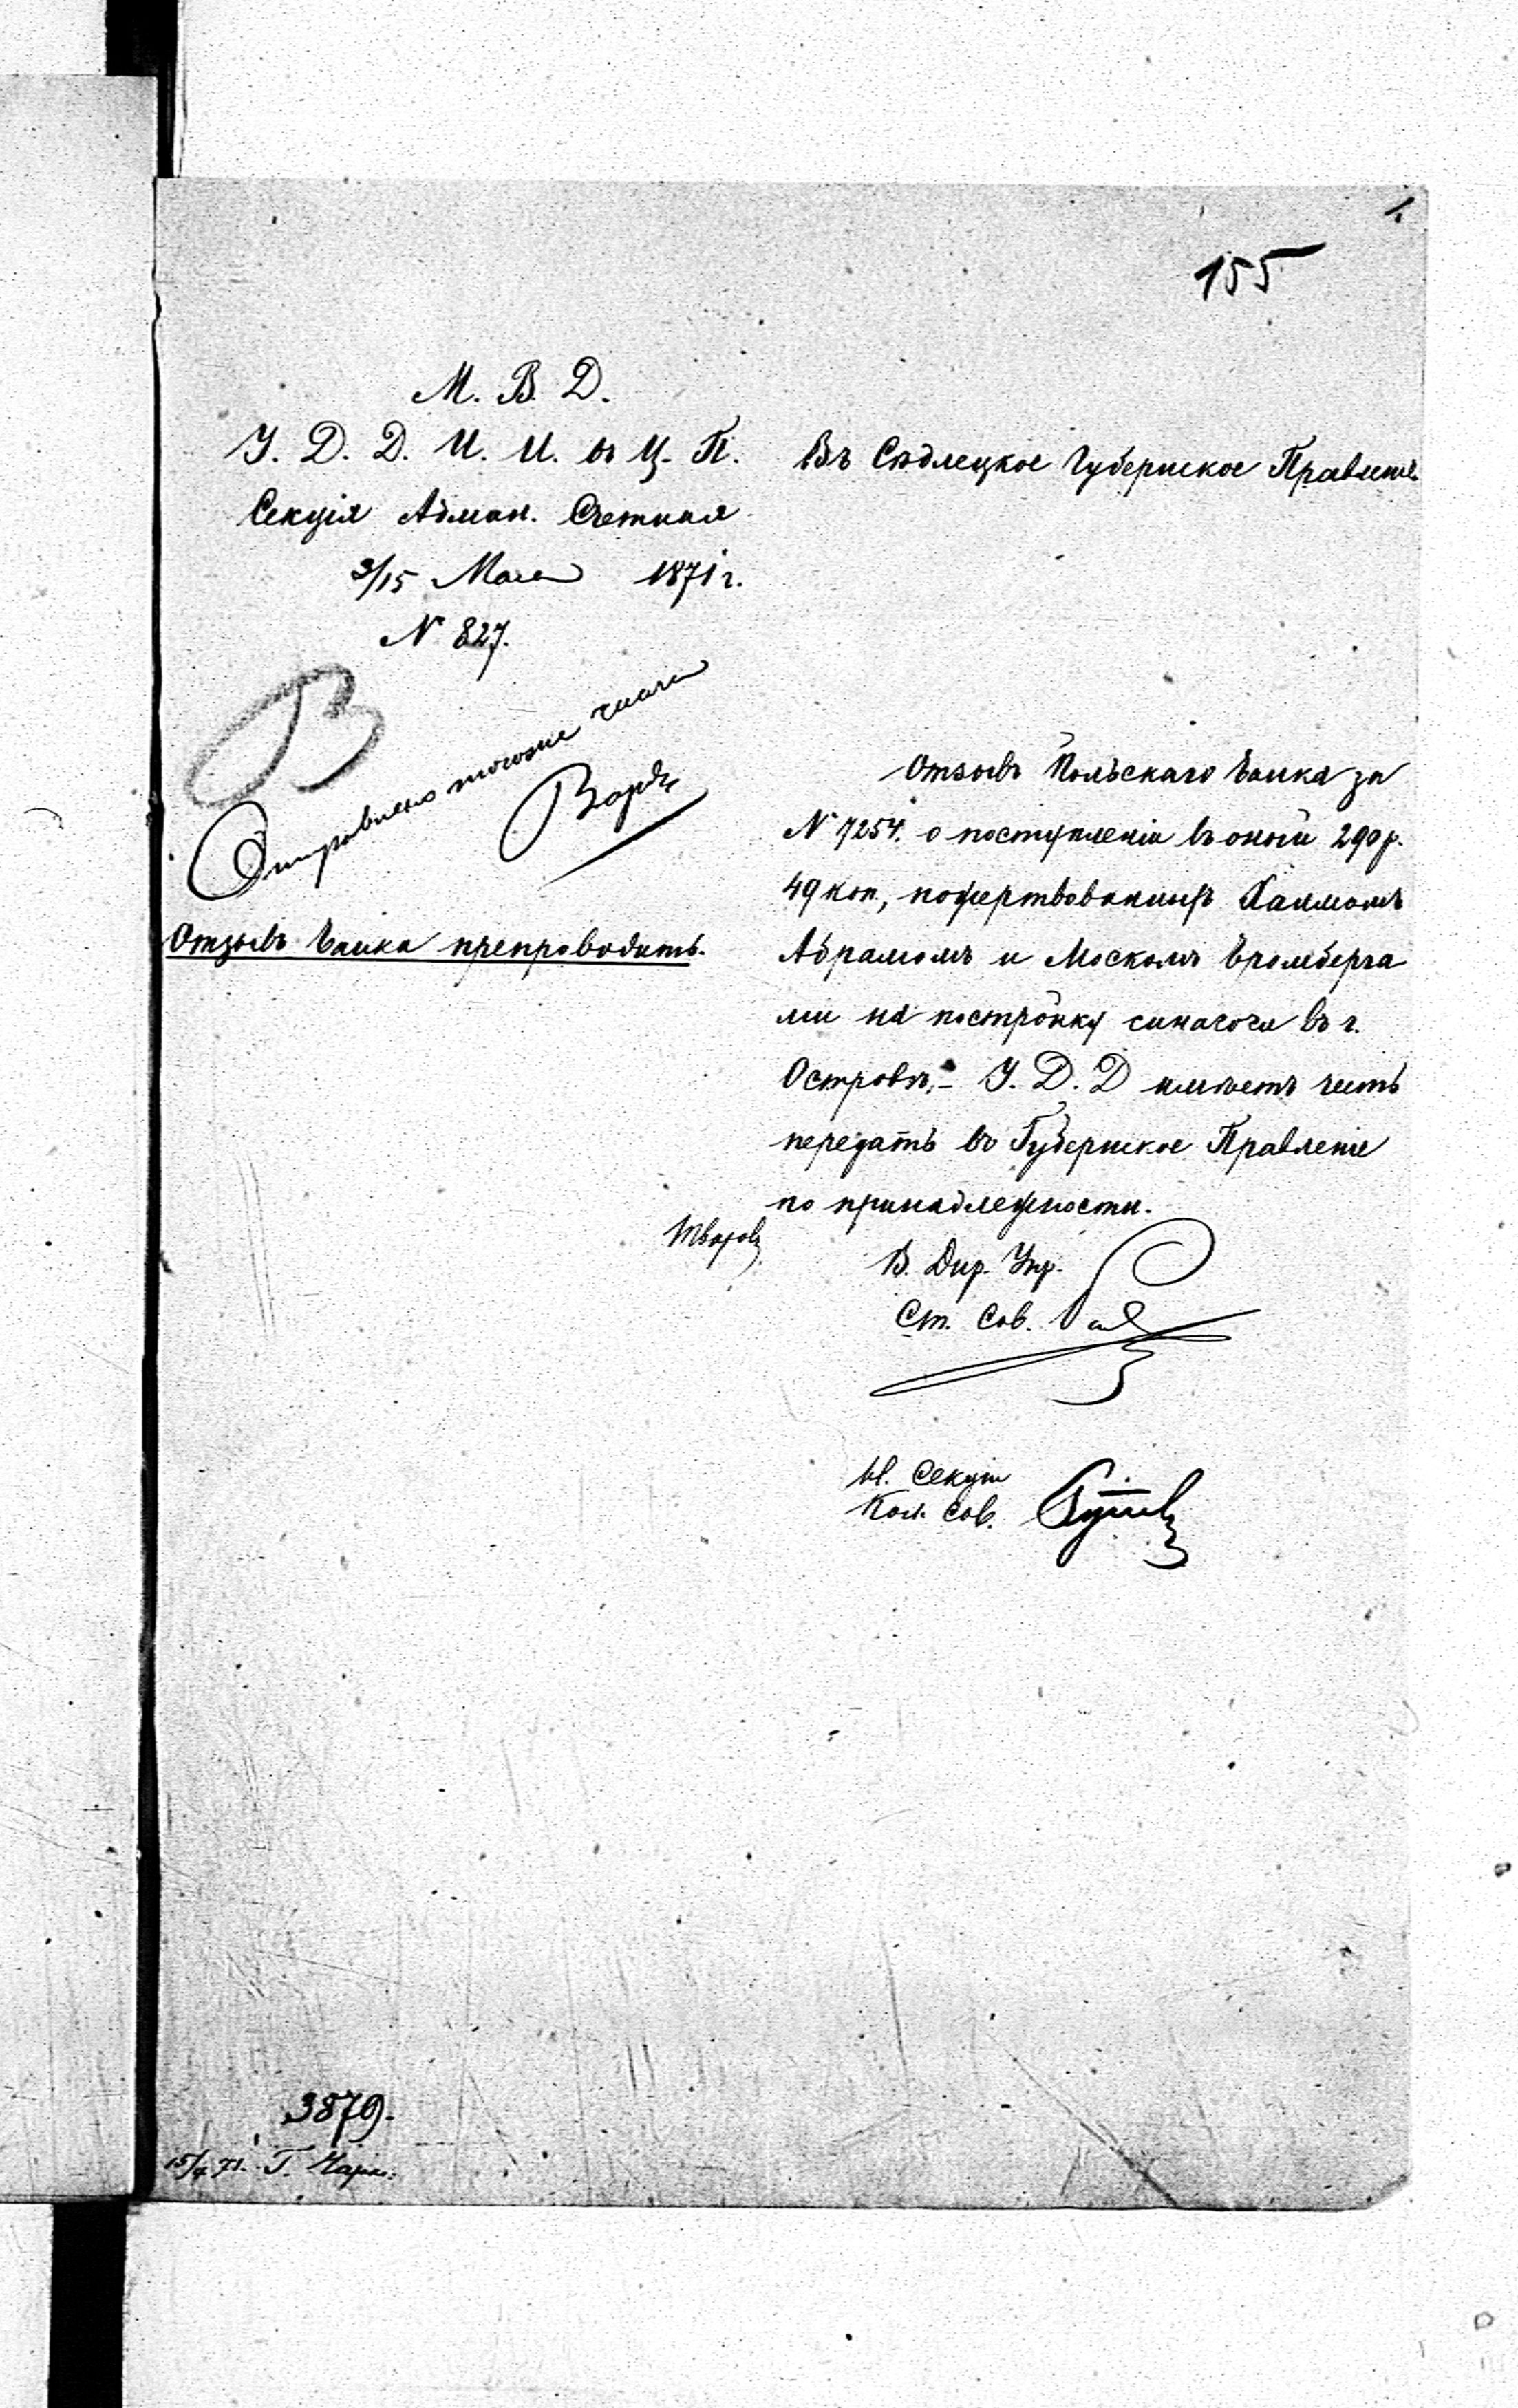 155
М. В. Д.
У. Д. Д. И. И. въ Ц. П.
Секція Админ. Счетная
3/15 Марта 1871 г.
N 827.
Отправлено тогоже числа
Отзывъ банка препроводить.
Въ Сѣдлецкое Губернское Правленіе
Отзывъ Польскаго банка за
N 7254. о поступленіи въ оный 290 р.
49 коп., пожертвованныхъ Хаимомъ
Абрамомъ и Москомъ Бромберга
ми на постройку синагоги въ г.
Островѣ, - У. Д. Д имѣетъ честь
передать въ Губернское Правленіе
по принадлежности.
В. Дир. Упр.
Ст. Сов.
Н. Секціи
Кол. Сов.
3879.
15/4 71. Г.